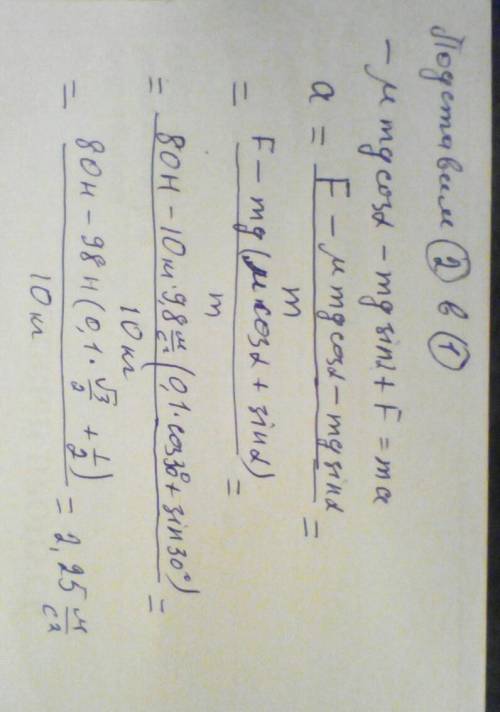 Подставим ② в ①
− μmgcosα − mgsinα + F = ma
a = (F − μmgcosα − mgsinα) / m =
= (F − mg(μcosα + sinα)) / m =
= (80Н − 10кг·9,8 м/с²(0,1·cos30° + sin30°)) / 10кг =
= (80Н − 98Н(0,1·√3/2 + 1/2)) / 10кг = 2,25 м/с²